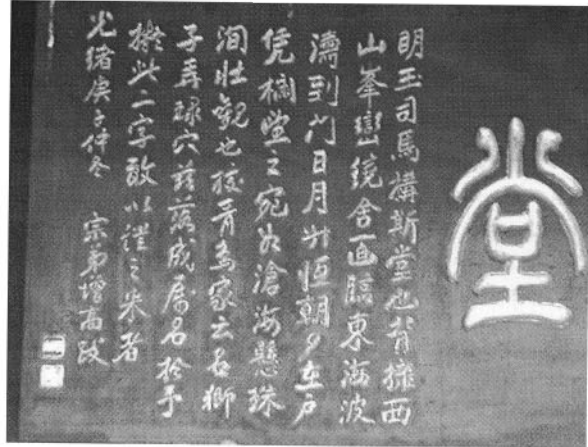 堂
明玉司馬構斯堂也背擁西
山峯巒繞舍一面臨東海波
濤到門日月升恒朝夕在戶
凭欄望之宛如滄海懸珠
洵壯觀也按青烏家云名獅
子弄球穴茲落成屬名於予
擬此二字敢以證之来者
光緒庚子仲冬 宗弟增高跋